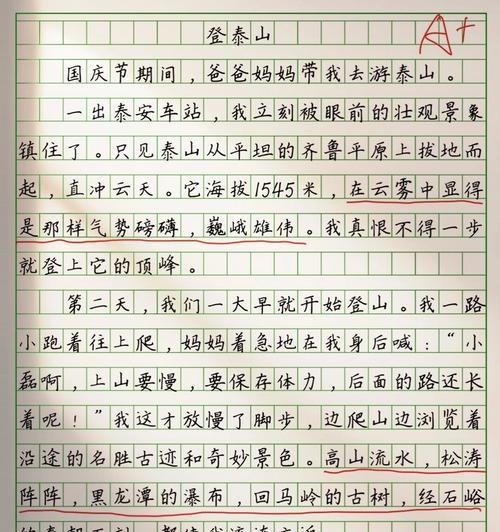 登泰山
A+
国庆节期间，爸爸妈妈带我去游泰山。
一出泰安车站，我立刻被眼前的壮观景象
镇住了。只见泰山从平坦的齐鲁平原上拔地而
起，直冲云天。它海拔1545米，在云雾中显得
是那样气势磅礴，巍峨雄伟。我真恨不得一步
就登上它的顶峰。
第二天，我们一大早就开始登山。我一路
小跑着往上爬，妈妈着急地在我身后喊：“小
磊啊，上山要慢，要保存体力，后面的路还长
着呢！”我这才放慢了脚步，边爬山边浏览着
沿途的名胜古迹和奇妙景色。高山流水，松涛
阵阵，黑龙潭的瀑布，回马岭的古树，经石峪